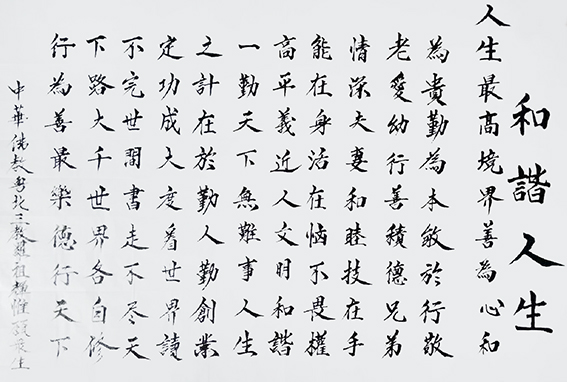 和諧人生
人生最高境界善為心和
為貴勤為本敏於行敬
老愛幼行善積德兄弟
情深夫妻和睦技在手
能在身活在恼不畏權
高平義近人文明和諧
一勤天下無難事人生
之計在於勤人勤創業
定功成大度看世界讀
不完世間書走不尽天
下路大千世界各自修
行為善最樂德行天下
中華佛教粤北三教祖惟生